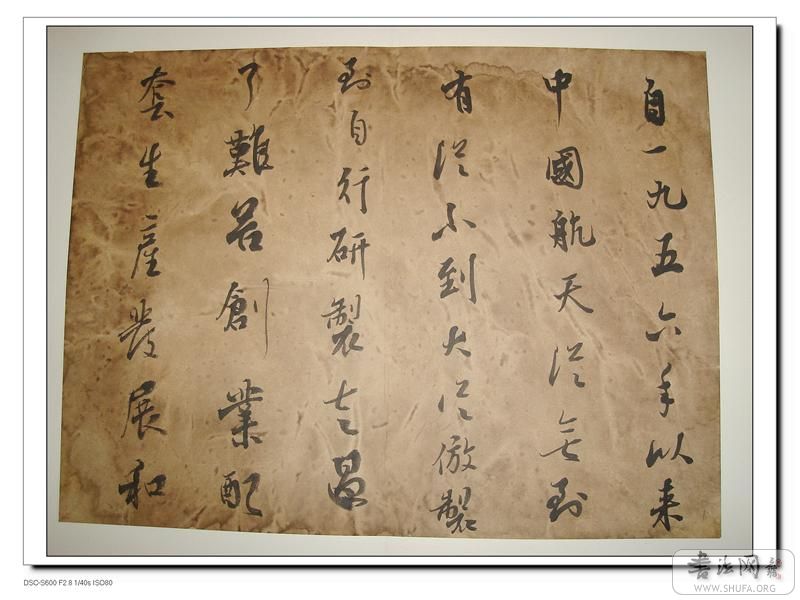 自一九五六年以来
中國航天從無到
有從小到大從倣製
到自行研製走過
了艱苦創業配
套生產發展和
DSC-S600 F2.8 1/40s ISO80
書法网
WWW.SHUFA.ORG